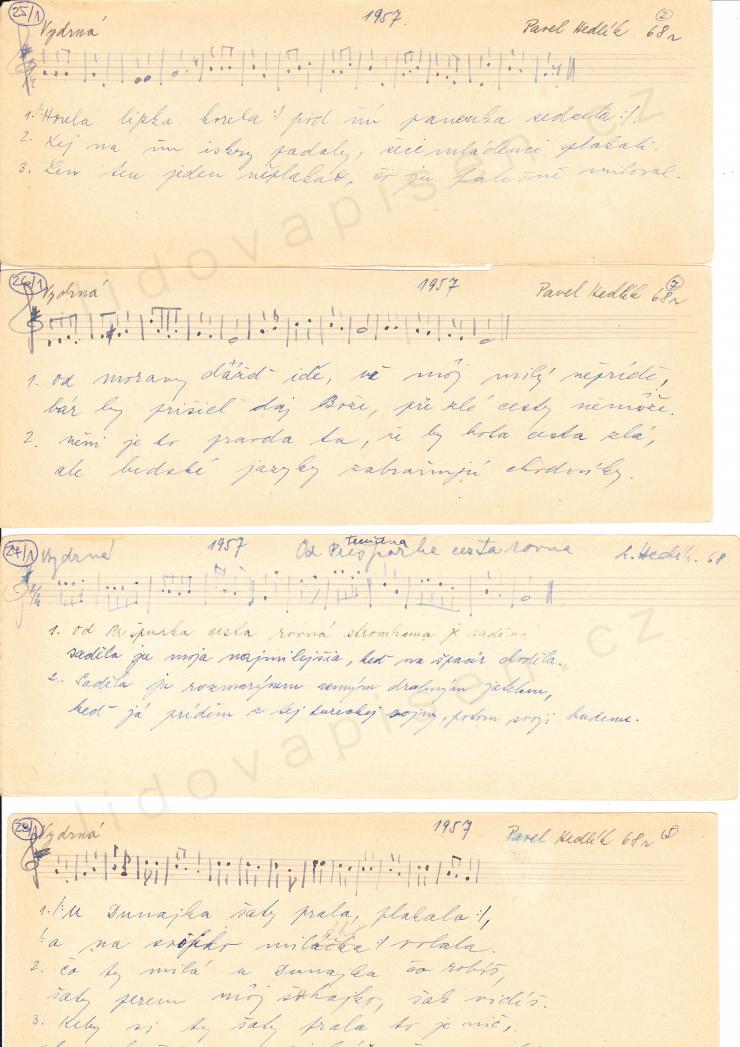 25/1 Vydrná 1957. Pavel Hedlík 68 r 2
1. /:Horela lipka horela:/ pod ňú panenka sedzela:/.
2. Kej na ňu iskry padaly, mládenci plakali.
3. Len ten jeden neplakal, čo ju falešně miloval.
26/1 Vydrná 1957 Pavel Hedlík 68 r 7
1. Od moravy dážď ide, už môj milý nepríde,
bár by prišiel daj Bože, pre zlé cesty nemôže.
2. néni je to pravda ta, že by bola cesta zlá,
ale ludské jazyky zabraňujú chodníky.
27/1 Vydrná 1957 Od Prešpurka cesta rovna Hedlík. 68
Trenčína
1. Od Prešpurka cesta rovná stromkama je saděna
saděla ju moja najmilejšia, keď na špacír chodila.
2. Saděla ju rozmarýnem drobným jatelem,
keď já prídem z tej tureckej vojny, potom svoji budeme.
28/1 Vydrná 1957 Pavel Hedlík 68 r 5
1. /:U Dunajka šaty prala, plakala:/,
/:a na svojho miláčka:/ volala.
2. čo ty milá u Dunajka čo robíš,
šaty perem môj šuhajko, šak vidíš.
3. Keby si ty šaty prala to je nič,
lidovapisen.cz
lidovapisen.cz